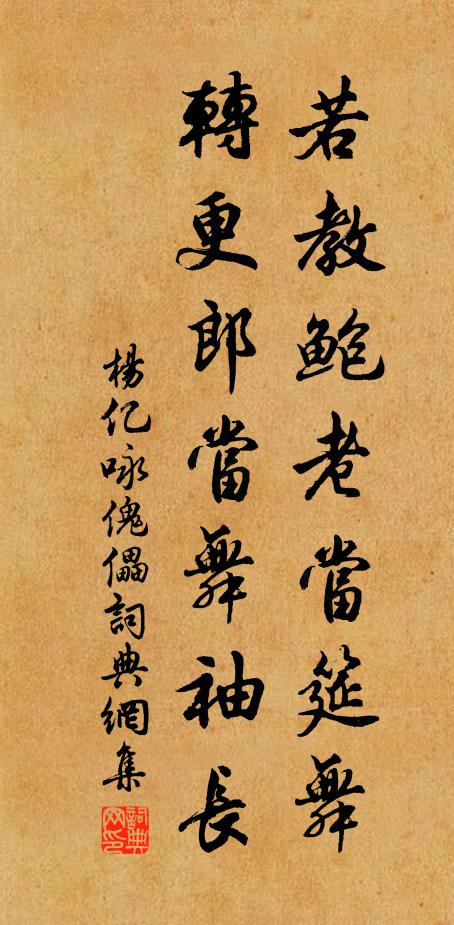 若教鮑老當筵舞
轉更郎當舞袖長
楊亿咏傀儡詞典網集
詞典网印